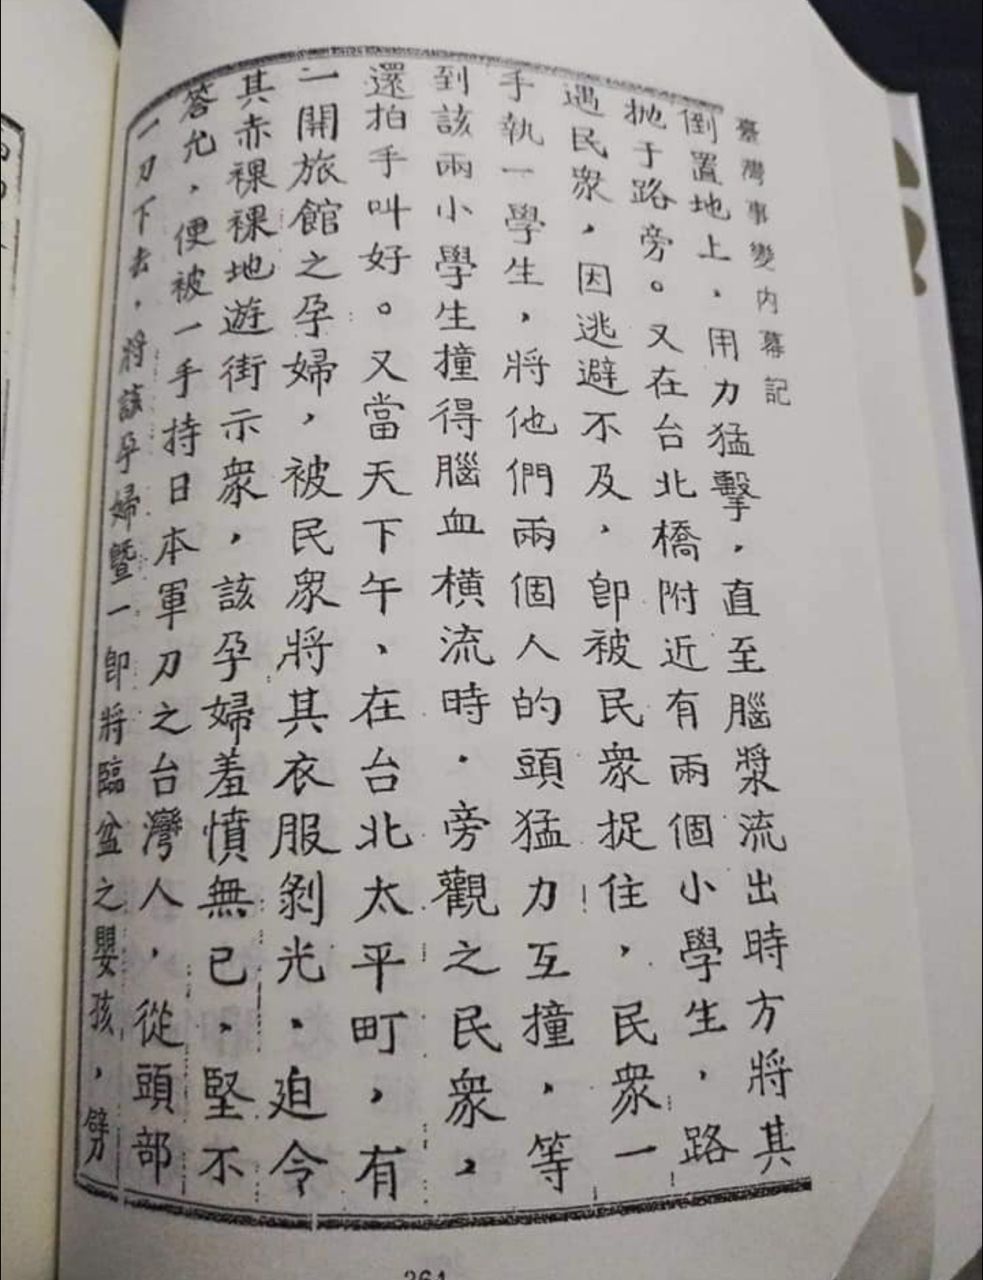 臺灣事變內幕記
倒置地上，用力猛擊，直至腦漿流出時方將其
拋于路旁。又在台北橋附近有兩個小學生，路
遇民衆，因逃避不及，卽被民衆捉住，民衆一
手執一學生，將他們兩個人的頭猛力互撞，等
到該兩小學生撞得腦血橫流時，旁觀之民衆，
還拍手叫好。又當天下午、在台北太平町，有
一開旅館之孕婦，被民衆將其衣服剝光，迫令
其赤裸裸地遊街示衆，該孕婦羞憤無已，堅不
答允，便被一手持日本軍刀之台灣人，從頭部
一刀下去，將該孕婦暨一卽將臨盆之嬰孩，劈
261